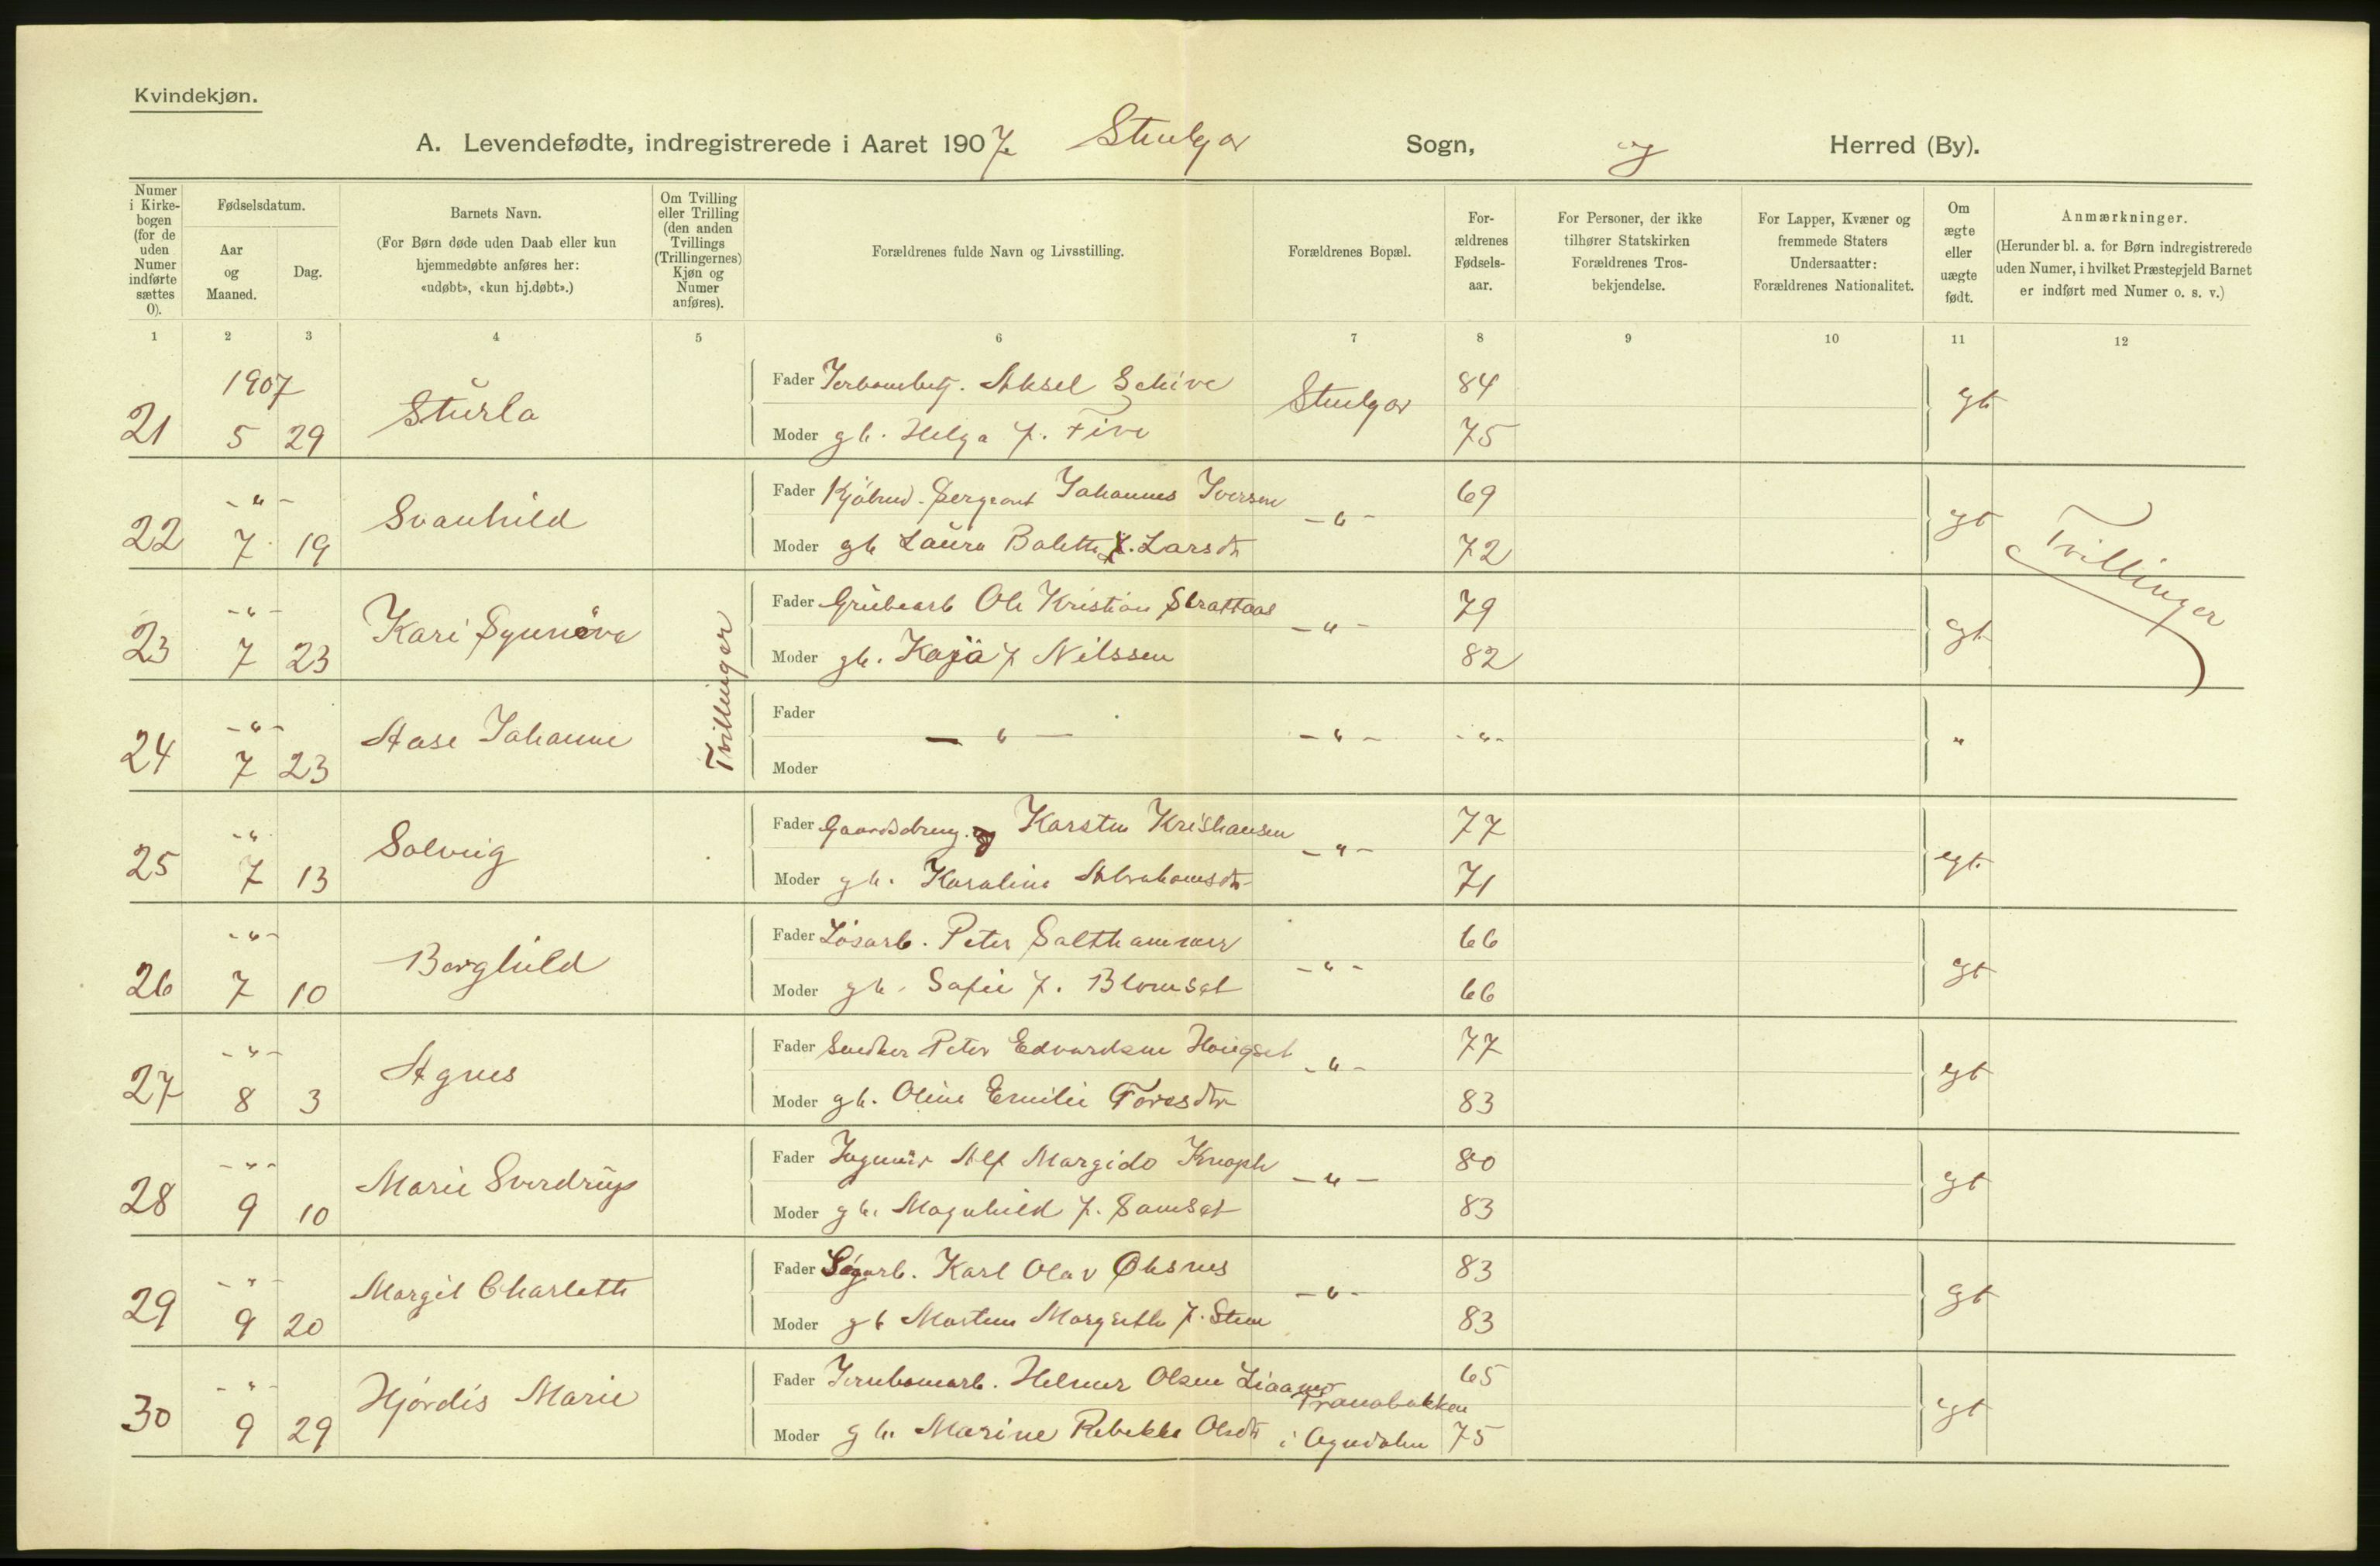 Kvindekjøn.
A. Levendefødte, indregistrerede i Aaret 1907 Stenkjær Sogn, og Herred (By).
Numer i Kirke-bogen (for de uden Numer indførte sættes 0).
Fødselsdatum.
Aar og Maaned.
Dag.
Barnets Navn.
(For Børn døde uden Daab eller kun
hjemmedøbte anføres her:
«udøbt», «kun hj.døbt».)
Om Tvilling
eller Trilling
(den anden
Tvillings
(Trillingernes)
Kjøn og
Numer
anføres).
Forældrenes fulde Navn og Livsstilling.
Forældrenes Bopæl.
For-
ældrenes
Fødsels-
aar.
For Personer, der ikke
tilhører Statskirken
Forældrenes Tros-
bekjendelse.
For Lapper, Kvæner og
fremmede Staters
Undersaatter:
Forældrenes Nationalitet.
Om
ægte
eller
uægte
født.
Anmærkninger.
(Herunder bl. a. for Børn indregistrerede
uden Numer, i hvilket Præstegjeld Barnet
er indført med Numer o. s. v.)
1 2 3 4 5 6 7 8 9 10 11 12
1907
21 5 29 Sturla
Fader Aksel Schive 84
Moder gh. Helga f. Five 75 egt
-"-
22 7 19 Svanhild
Fader Kjøbmd. Sergeant Johannes Iversen -"- 69
Moder gh Laura Bolette f. Larsdtr 72 egt
Tvillinger
-"-
23 7 23 Kari Synnøve
Fader Grubearb Ole Kristian Skrattaas -"- 79
Moder gh. Kaja f Nilssen 82 egt
Tvillinger
-"-
24 7 23 Aase Johanne
Fader
-"- -"- -"- "
Moder
-"-
25 7 13 Solveig
Fader Gaardsdreng. Karsten Kristiansen -"- 77
Moder gh. Karoline Abrahamsdtr 71 egt
-"-
26 7 10 Borghild
Fader Løsarb. Peter Salthammer -"- 66
Moder gh. Sofie f. Blomset 66 egt
-"-
27 8 3 Agnes
Fader Snedker Peter Edvardsen Haugset -"- 77
Moder gh. Oline Emilie Toresdtr 83 egt
-"-
28 9 10 Marie Sverdrup
Fader Ingeniør Alf Margido Knoph -"- 80
Moder gh. Magnhild f. Samset 83 egt
-"-
29 9 20 Margit Charlotte
Fader Sagarb. Karl Olav Øksnes -"- 83
Moder gh Martine Margrethe f. Stene 83 egt
-"-
30 9 29 Hjørdis Marie
Fader Jernbanearb. Helmer Olsen 65
Tranabakken
Moder gh. Marine Rebekka Olsdtr i Ogndalen 75 egt